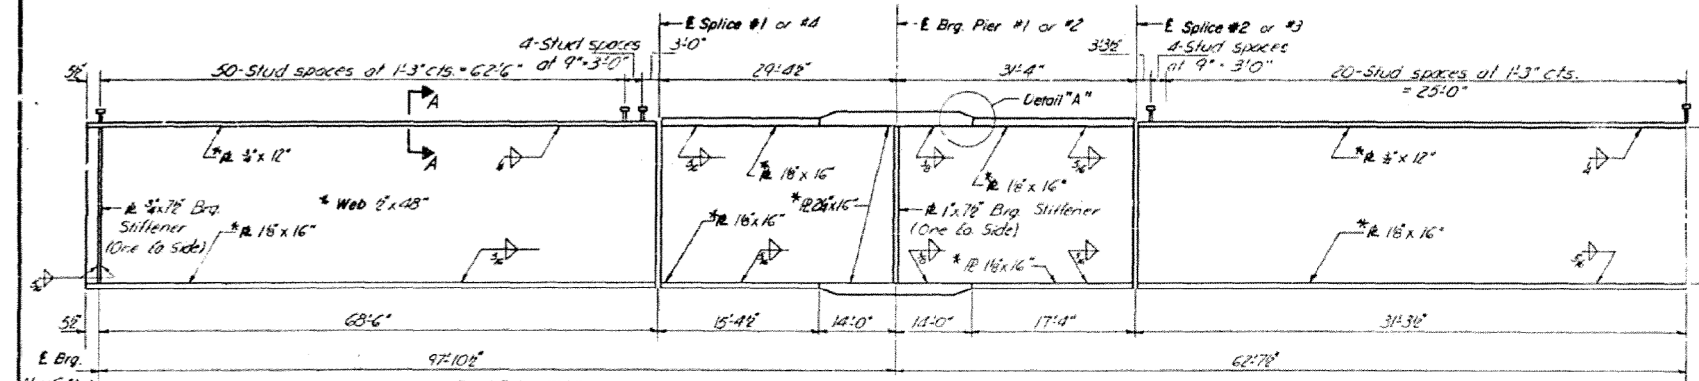 ℄ Splice #1 or #4
℄ Brg. Pier #1 or #2
℄ Splice #2 or #3
4-Stud spaces
at 9"=3'-0"
3'-0"
3'-3½"
4-Stud spaces
at 9" = 3'0"
5½"
50-Stud spaces at 1'-3" cts. = 62'-6"
29'-4½"
31'-4"
20-Stud spaces at 1'-3" cts.
= 25'-0"
A
Detail "A"
A
*℄ x 12"
*℄ 1⅛" x 16"
*℄ 1⅛" x 16"
*℄ x 12"
℄ ¾"x7½" Brg.
Stiffener
(One Ea. Side)
* Web ½"x48"
*℄ 1⅛" x 16"
*℄ 1⅛" x 16"
℄ 1"x7½" Brg. Stiffener
(One Ea. Side)
*℄ 1⅛" x 16"
*℄ 1⅛" x 16"
5½"
68'-6"
15'-4½"
14'-0"
14'-0"
17'-4"
31'-3½"
℄ Brg.
97'-10½"
62'-7½"